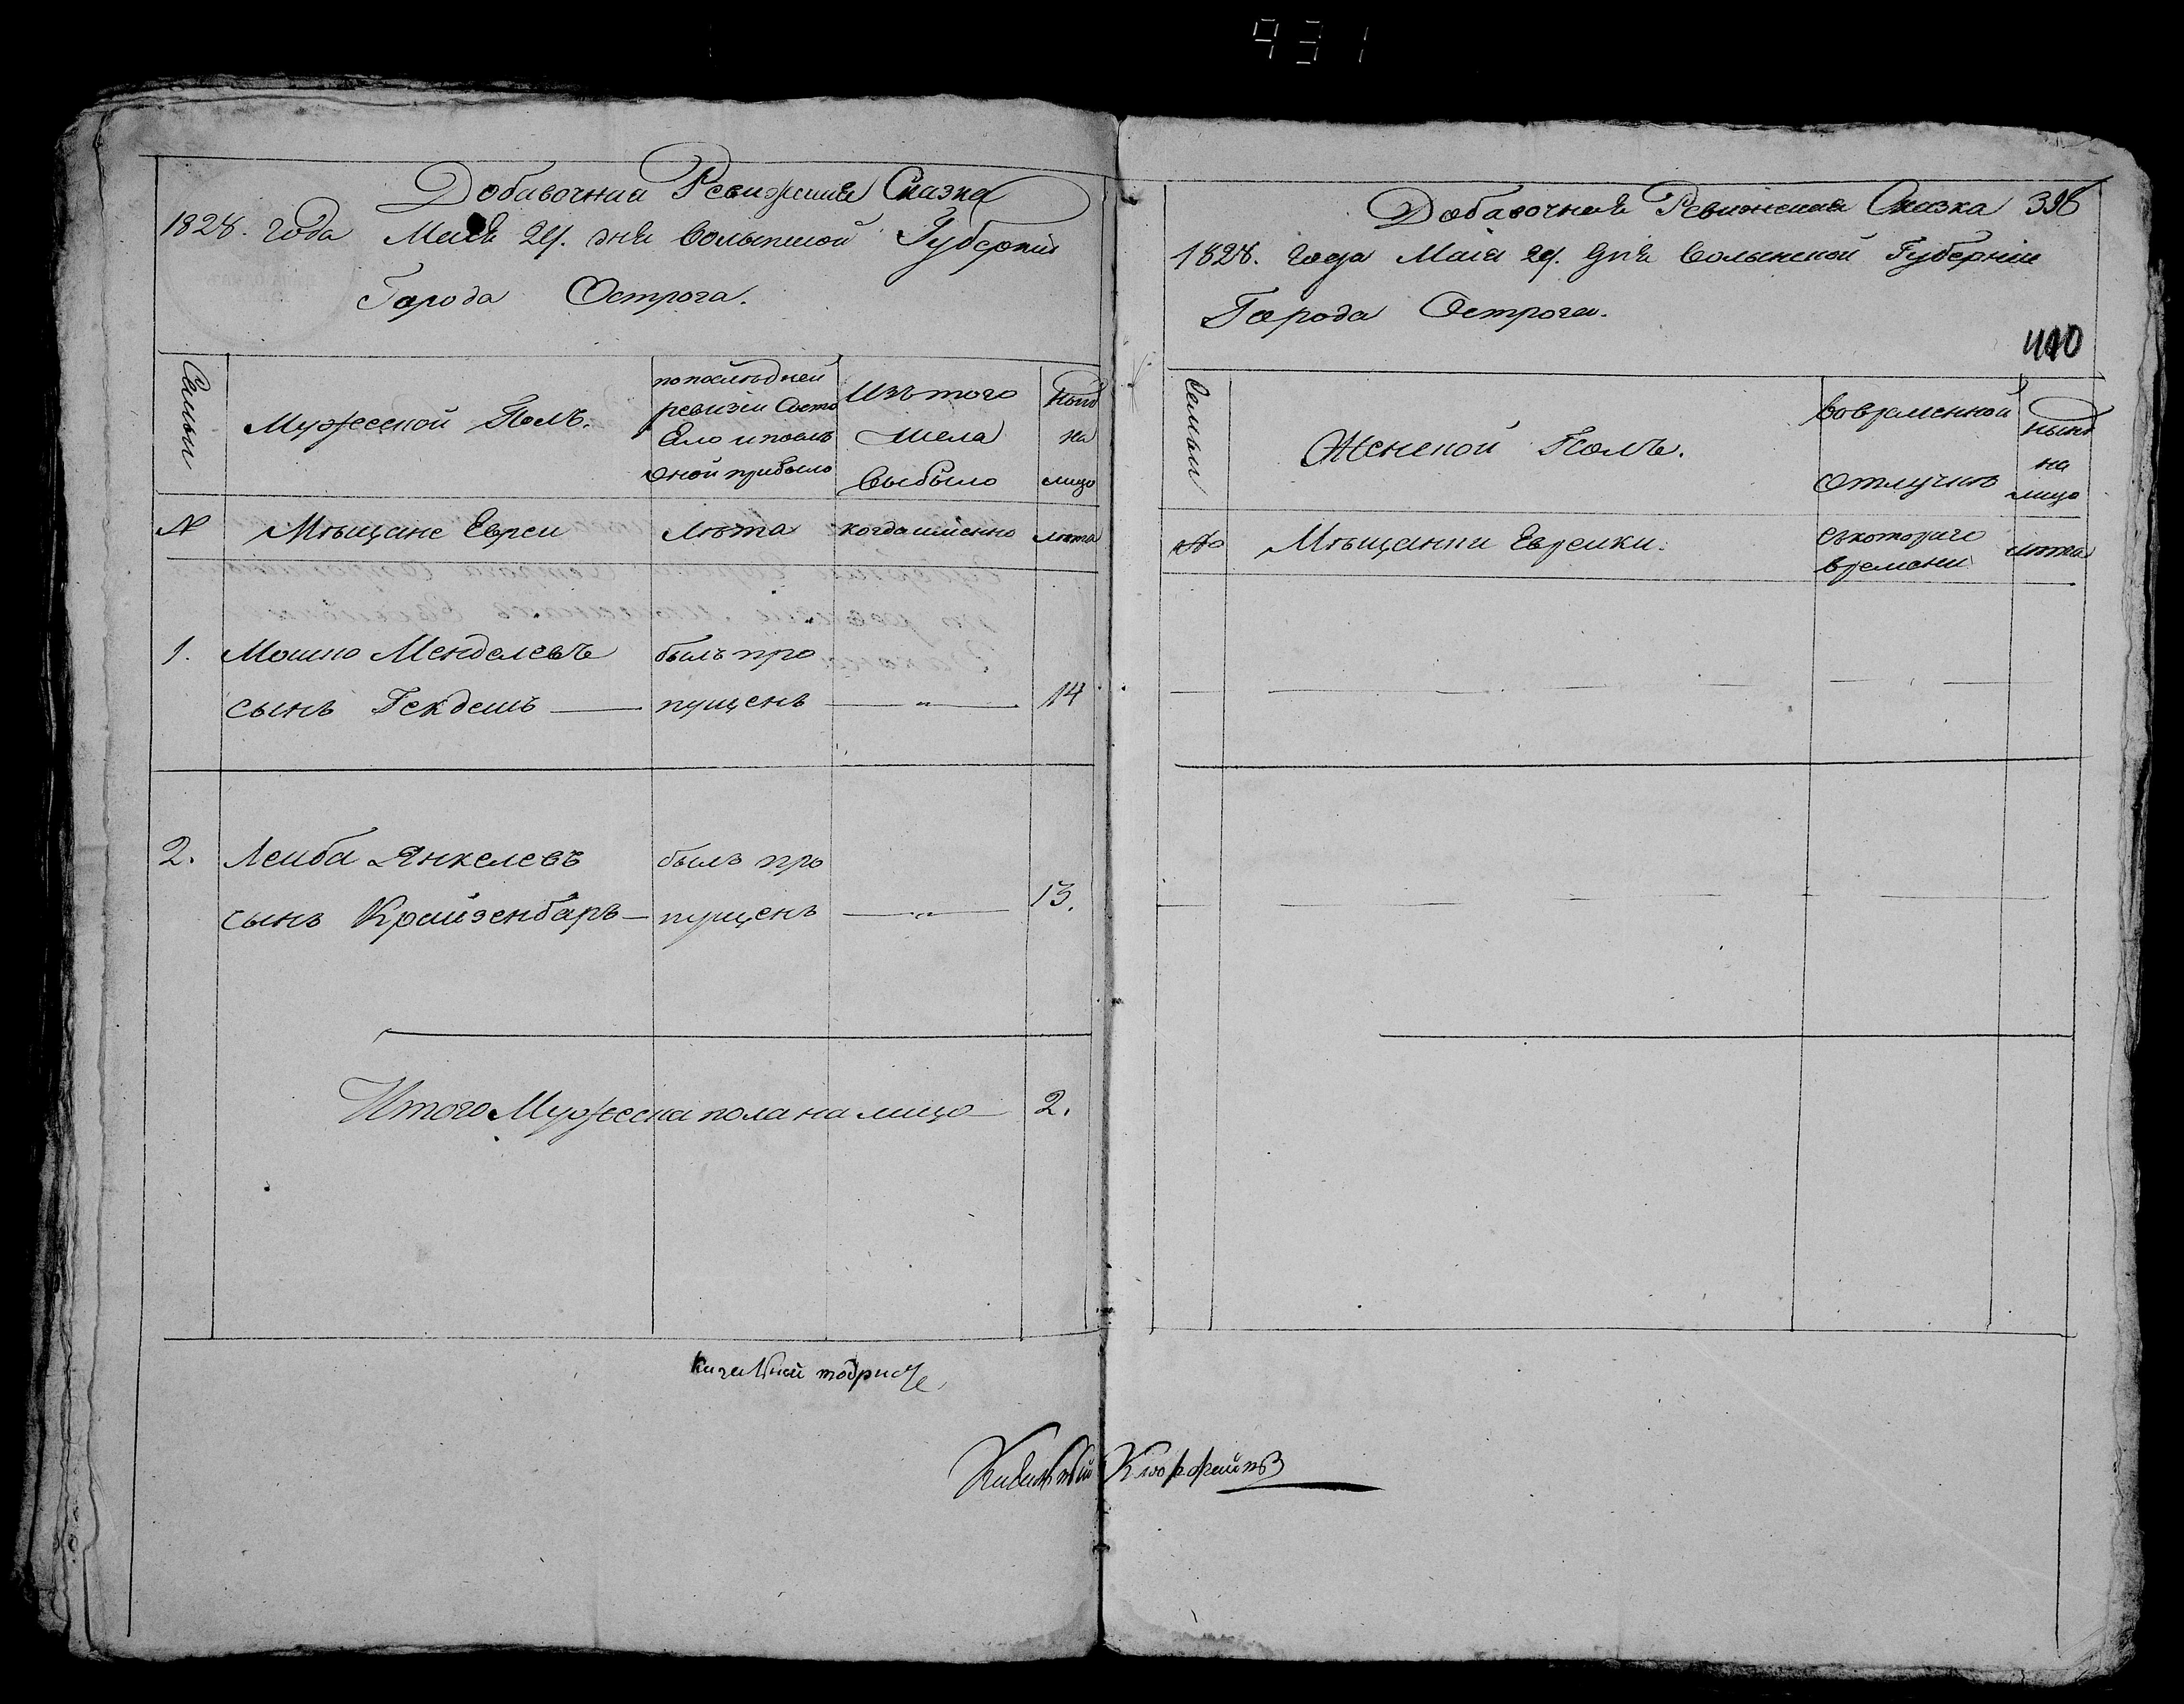 931
Добавочная Ревижская Сказка
1828. года Маия 24. дня Волынской Губернии
Города Острога.
Семьи
Мужеской Полъ.
по последней
ревизии Состо
яло и после
оной прибыло
Изъ того
числа
выбыло
Ныне
на
лицо
№ Мѣщане Евреи Лѣта когда именно лѣта
1. Мошко Менделевъ былъ про
сынъ Гекдешъ — пущенъ — " — 14
2. Леиба Янкелевъ былъ про
сынъ Крайзенбаръ — пущенъ — " — 13.
Итого Мужеска пола на лицо — 2.
Добавочная Ревижская Сказка 398
1828. года Маия 24. дня Волынской Губернии
Города Острога.
410
Семьи
Женской Полъ.
Во временной
отлучке
Ныне
на
лицо
№ Мѣщанки Еврейки.
съ котораго
времени
лѣта